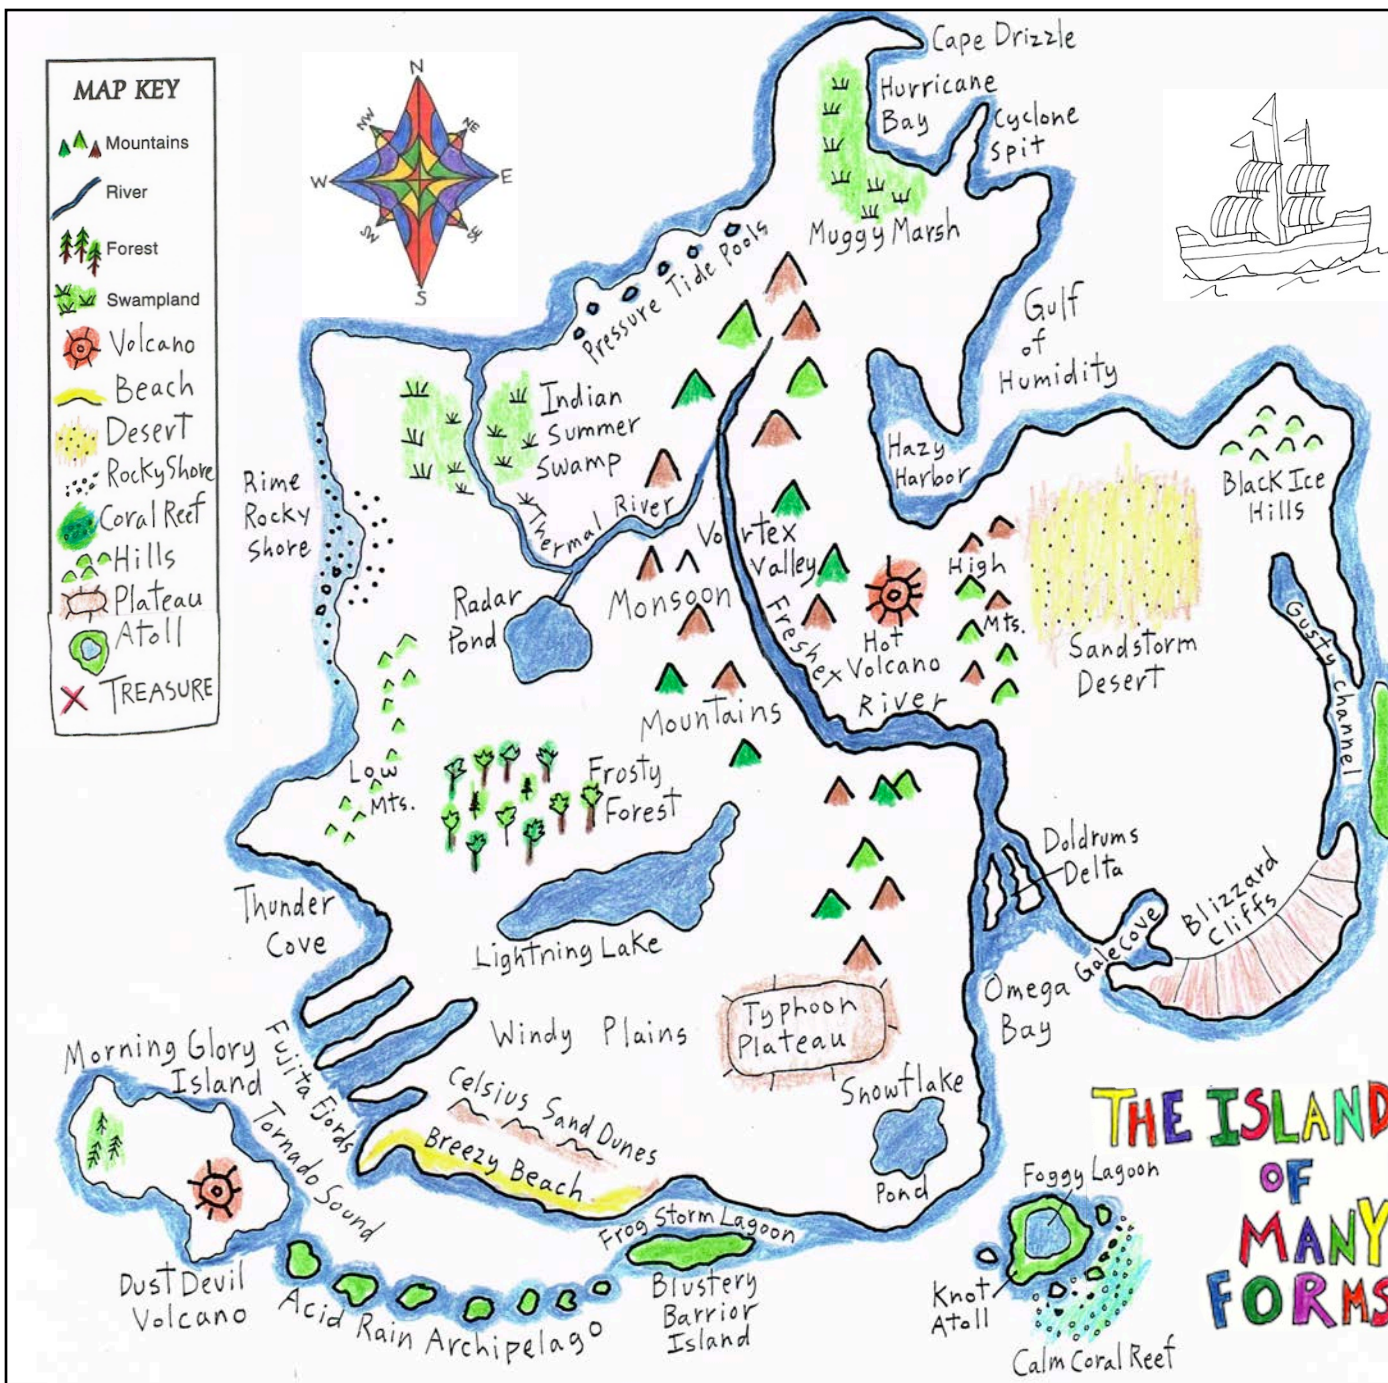 MAP KEY
Mountains
River
Forest
Swampland
Volcano
Beach
Desert
Rocky Shore
Coral Reef
Hills
Plateau
Atoll
TREASURE
N
NE
E
SE
S
SW
W
NW
Cape Drizzle
Hurricane
Bay
Cyclone
Spit
Muggy Marsh
Pressure Tide Pools
Gulf
of
Humidity
Indian
Summer
Swamp
Hazy
Harbor
Black Ice
Hills
Rime
Rocky
Shore
Thermal River
Vortex
Valley
High
Mts.
Radar
Pond
Monsoon
Mountains
Freshex
River
Hot
Volcano
Sandstorm
Desert
Gusty Channel
Low
Mts.
Frosty
Forest
Doldrums
Delta
Thunder
Cove
Lightning Lake
Gale Cove
Blizzard
Cliffs
Omega
Bay
Windy Plains
Typhoon
Plateau
Morning Glory
Island
Fujita Fjords
Celsius Sand Dunes
Snowflake
Pond
Breezy Beach
Tornado Sound
Frog Storm Lagoon
Dust Devil
Volcano
Acid Rain Archipelago
Blustery
Barrier
Island
Foggy Lagoon
Knot
Atoll
Calm Coral Reef
THE ISLAND
OF
MANY
FORMS